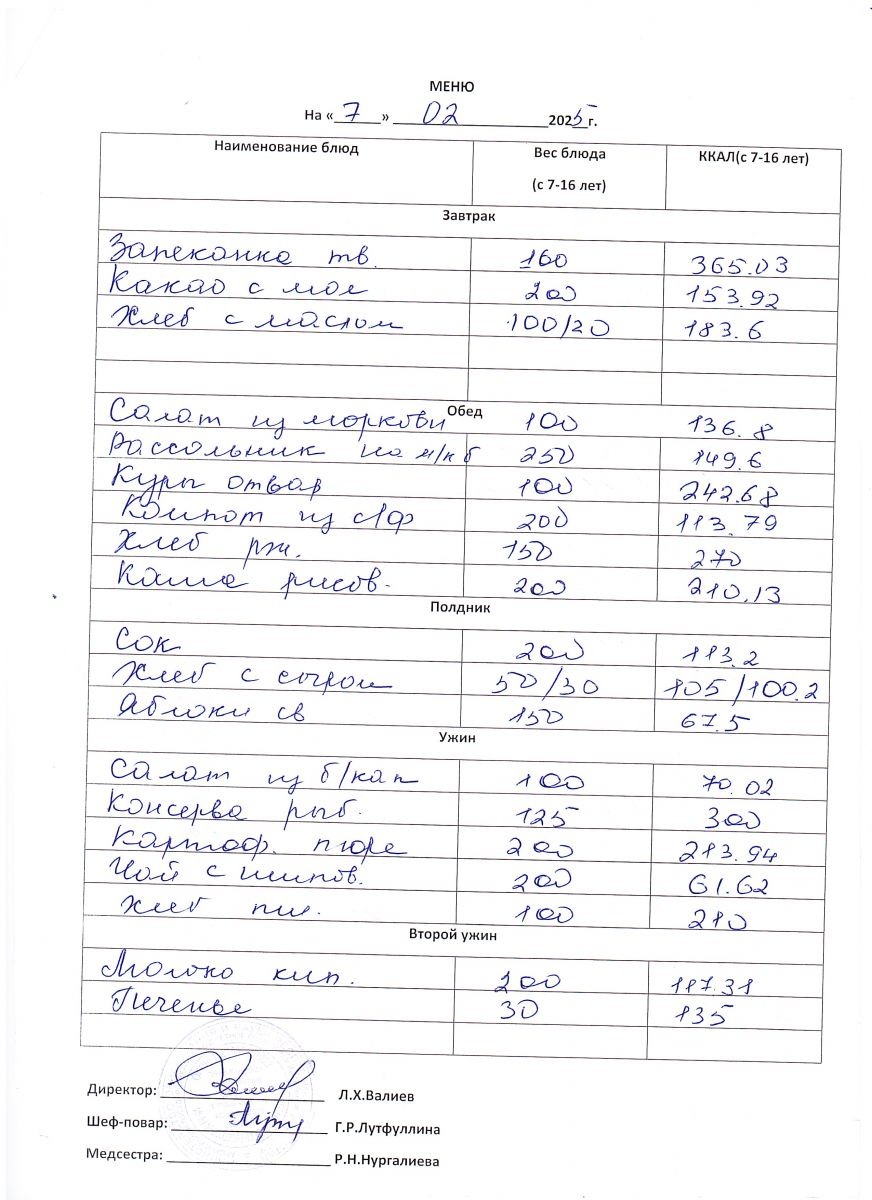 МЕНЮ
На « 7 » 02 2025 г.
Наименование блюд Вес блюда (с 7-16 лет) ККАЛ(с 7-16 лет)
Завтрак
Запеканка тв. 160 365.03
Какао с мол 200 153.92
Хлеб с маслом 100/20 183.6
Обед
Салат из моркови 100 136.8
Рассольник на м/к б 250 149.6
Куры отвар 100 242.68
Компот из с/ф 200 113.79
Хлеб рж. 150 270
Каша рисов. 200 210.13
Полдник
Сок 200 113.2
Хлеб с сыром 50/30 105/100.2
Яблоки св 150 67.5
Ужин
Салат из б/кап 100 70.02
Консерва рыб. 125 300
Картоф. пюре 200 213.94
Чай с шипов. 200 61.62
Хлеб пш. 100 210
Второй ужин
Молоко кип. 200 117.31
Печенье 30 135
Директор: Л.Х.Валиев
Шеф-повар: Г.Р.Лутфуллина
Медсестра: Р.Н.Нургалиева